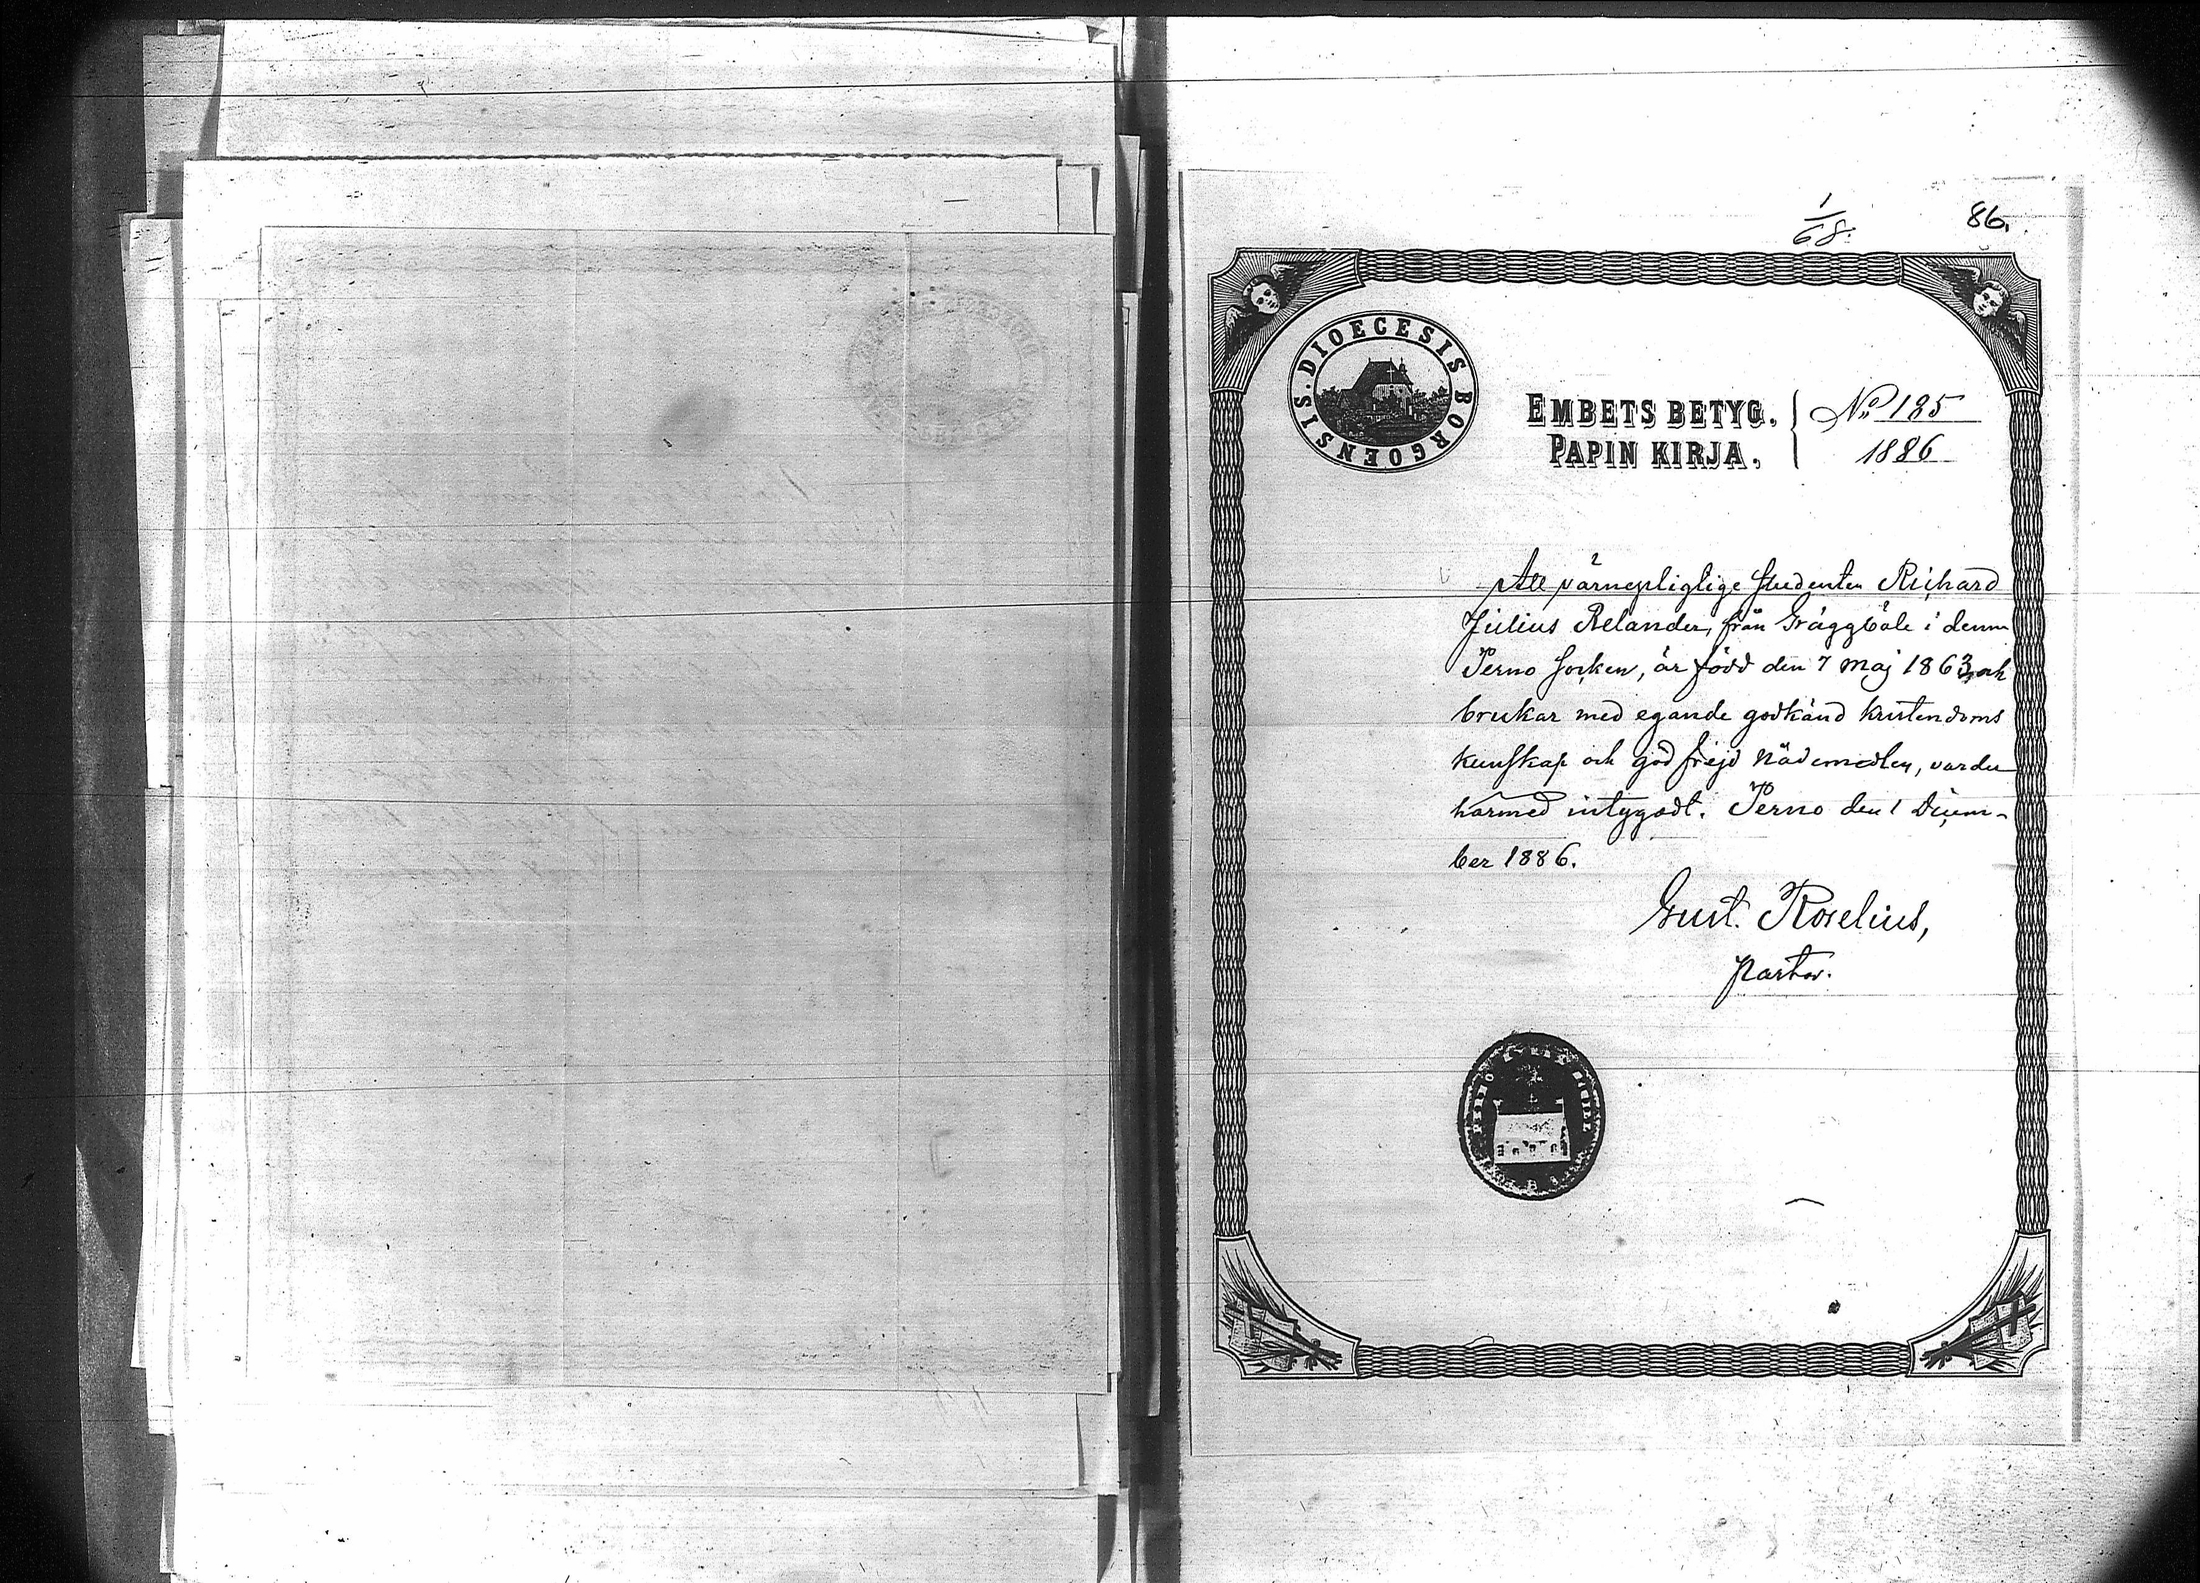 1/68.
86.
DIOECESIS BORGOENSIS.
EMBETS BETYG.
PAPIN KIRJA.
No 185
1886
Att värnepligtige studenten Richard
Julius Relander, från Gräggböle i denna
Perno socken, är född den 7 Maj 1863, och
brukar med egande godkänd kristendoms
kunskap och god frejd nådemedlen, varder
härmed intygadt. Perno den 1 Decem-
ber 1886.
Gust. Roselius,
Pastor.
PERNO KYRKAS SIGILL